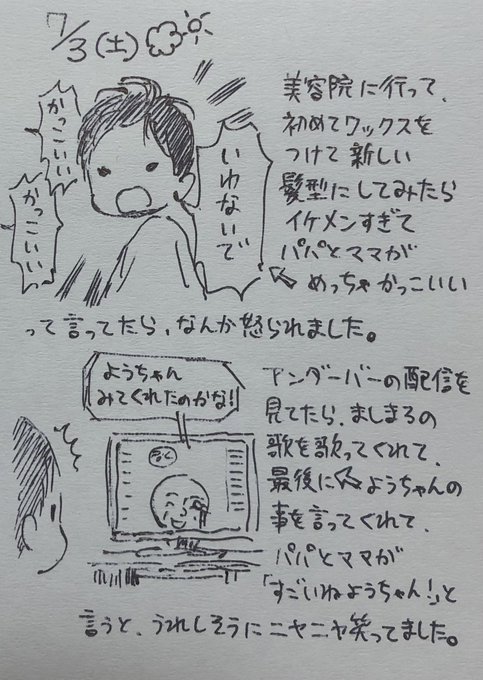 7/3(土)
かっこいい
かっこいい
いわないで
美容院に行って、
初めてワックスを
つけて新しい
髪型にしてみたら
イケメンすぎて
パパとママが
めっちゃかっこいい
って言ってたら、なんか怒られました。
ようちゃん
みてくれたのかな!
アンダーバーの配信を
見てたら、ましまろの
歌を歌ってくれて、
最後にようちゃんの
事を言ってくれて、
パパとママが
「すごいねようちゃん!」と
言うと、うれしそうにニヤニヤ笑ってました。